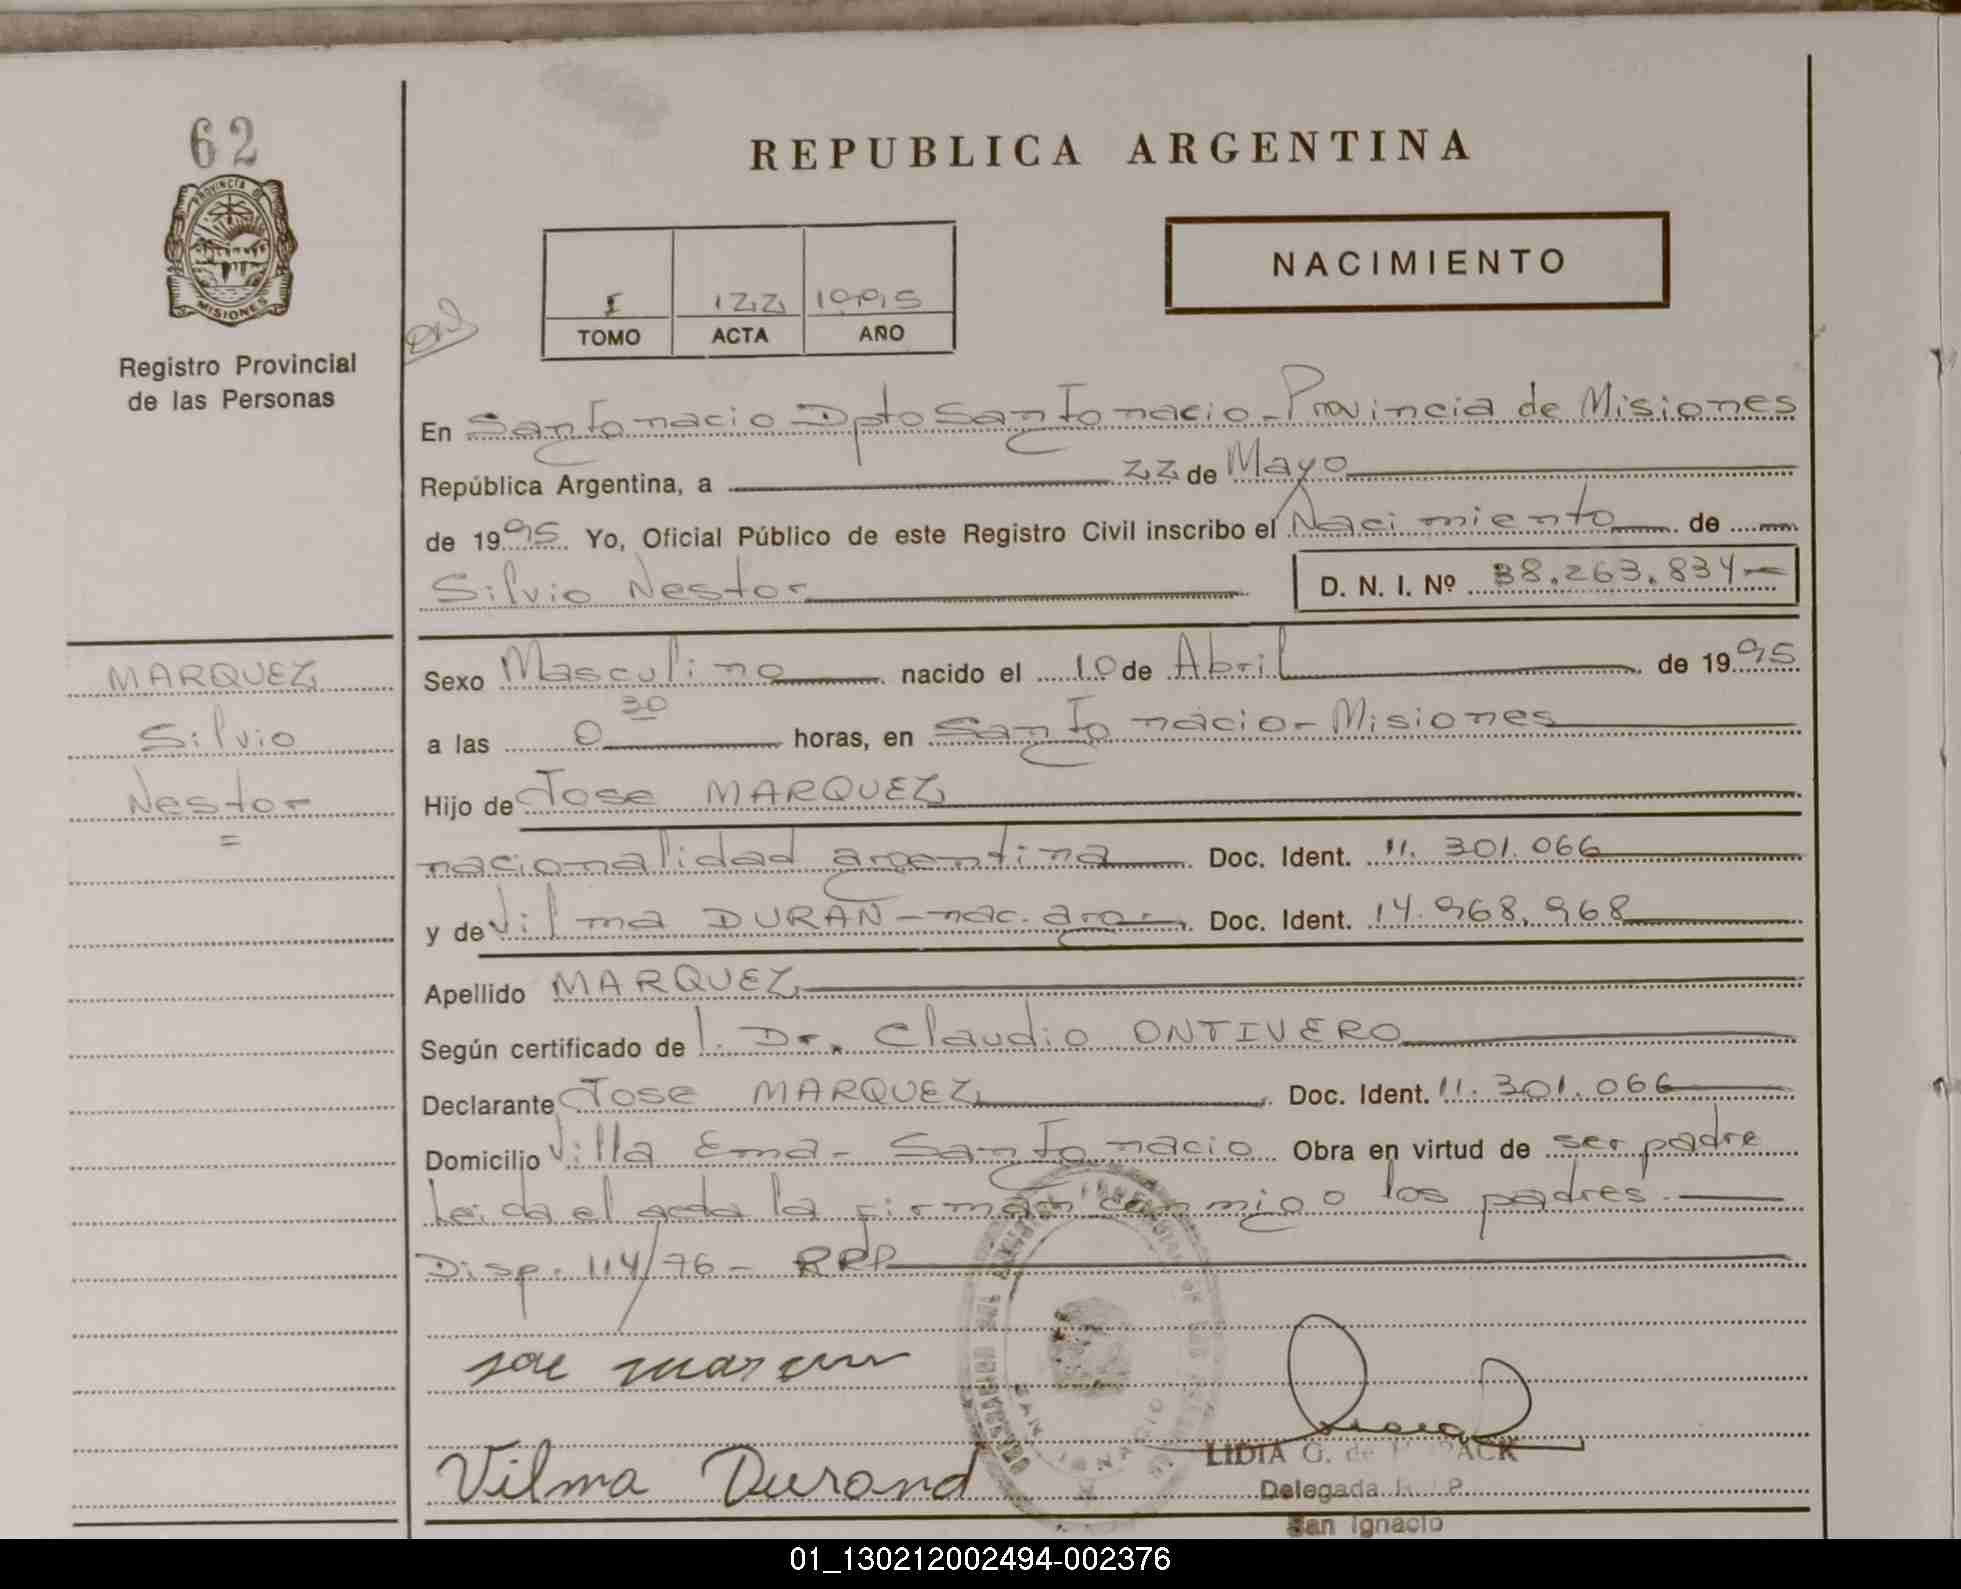 62
REPUBLICA ARGENTINA
PROVINCIA DE
MISIONES
Registro Provincial
de las Personas
I 122 1995
TOMO ACTA AÑO
NACIMIENTO
En San Ignacio Dpto San Ignacio - Provincia de Misiones
República Argentina, a 22 de Mayo
de 1995 Yo, Oficial Público de este Registro Civil inscribo el Nacimiento de
Silvio Nestor D. N. I. Nº 38.263.834
MARQUEZ
Silvio
Nestor
=
Sexo Masculino nacido el 10 de Abril de 1995
a las 0 30 horas, en San Ignacio - Misiones
Hijo de Jose MARQUEZ
nacionalidad argentina Doc. Ident. 11.301.066
y de Vilma DURAN - nac. arg. Doc. Ident. 14.968.968
Apellido MARQUEZ
Según certificado de l. Dr. Claudio ONTIVERO
Declarante Jose MARQUEZ Doc. Ident. 11.301.066
Domicilio Villa Ema - San Ignacio Obra en virtud de ser padre
Leida el acta la firman conmigo los padres.
Disp. 114/76 - RRP
Vilma Durand
SAN IGNACIO
LIDIA G. de
Delegada R.P.P.
San Ignacio
01_130212002494-002376